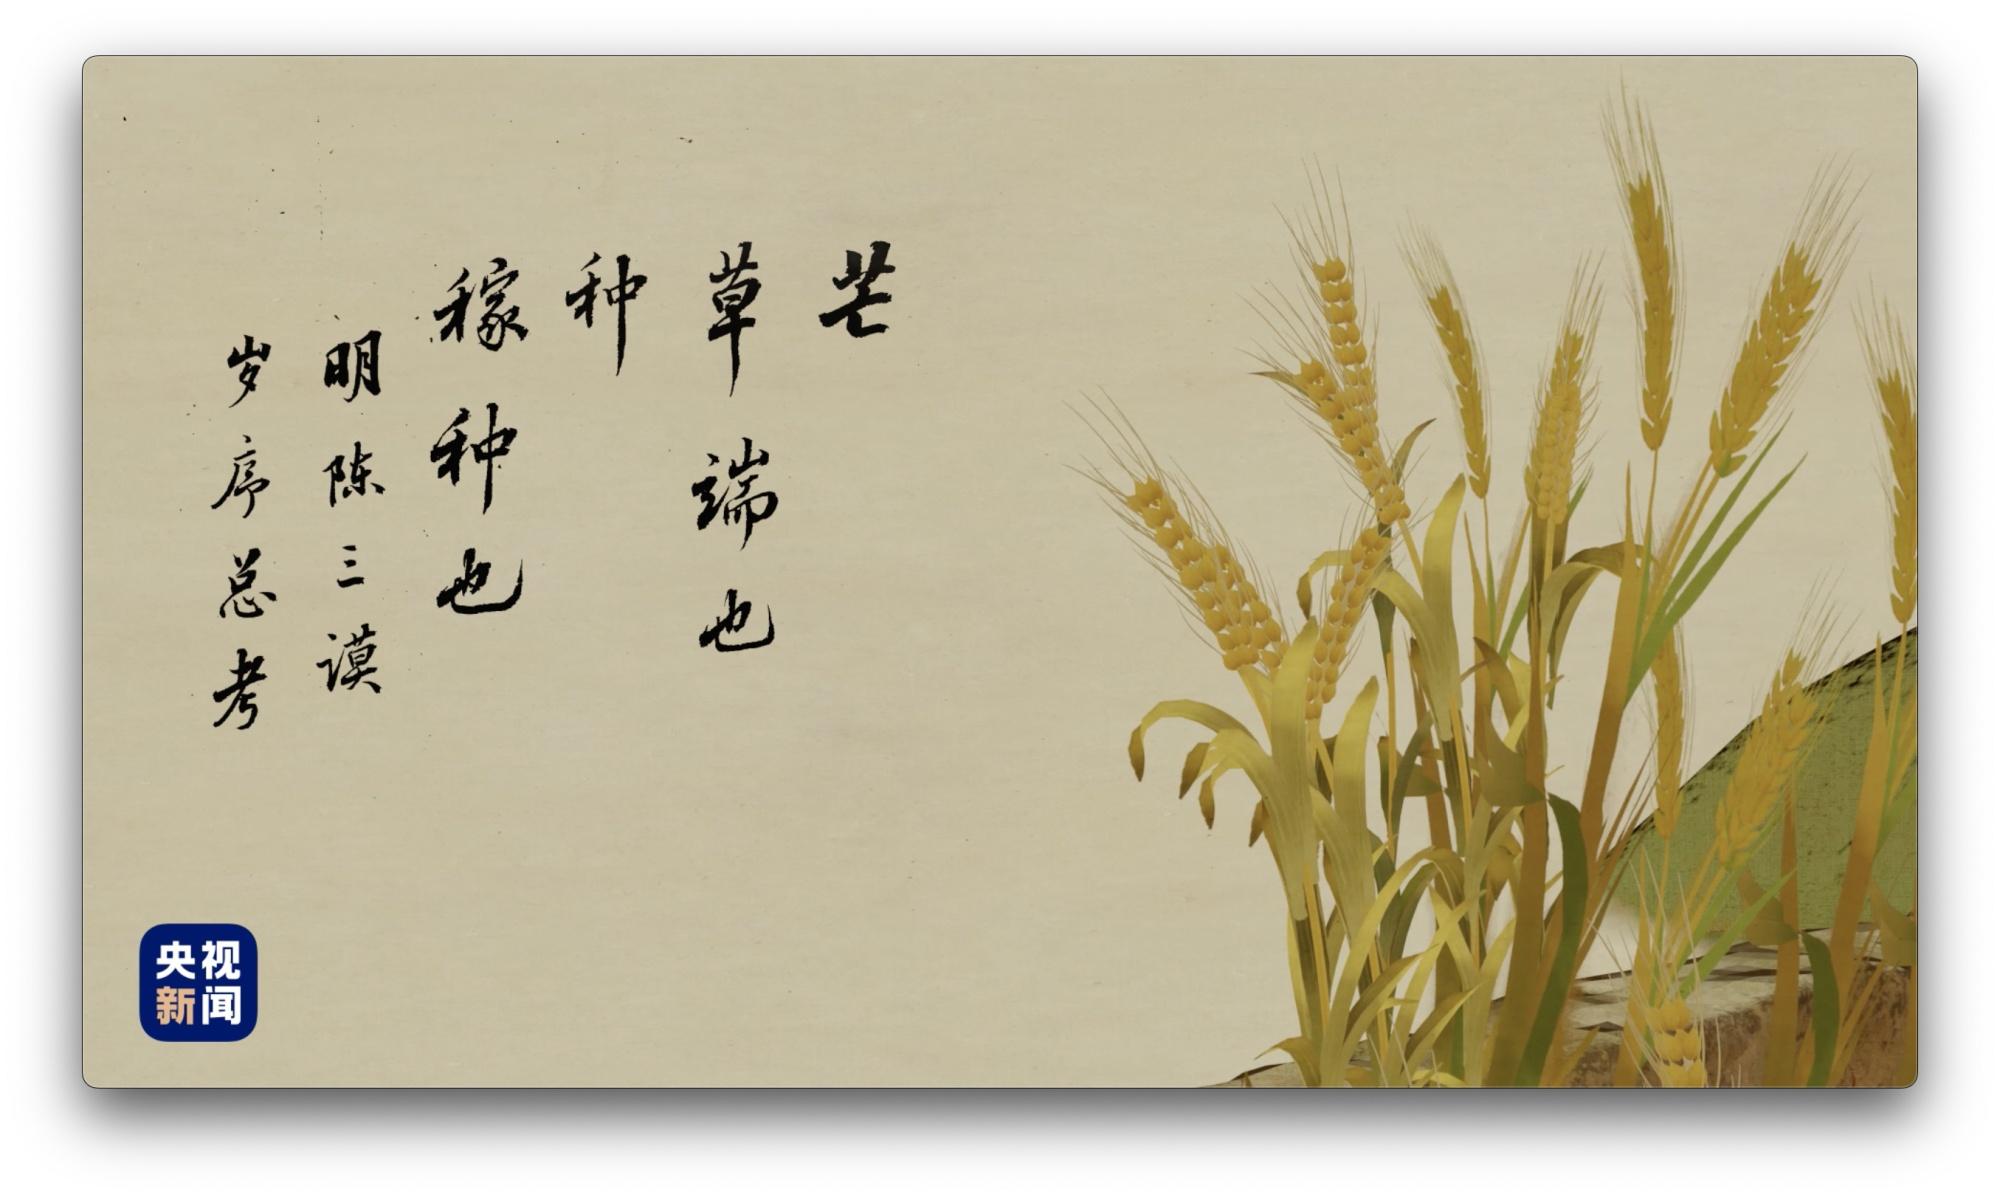 芒
草端也
种
稼种也
明陈三谟
岁序总考
央视
新闻